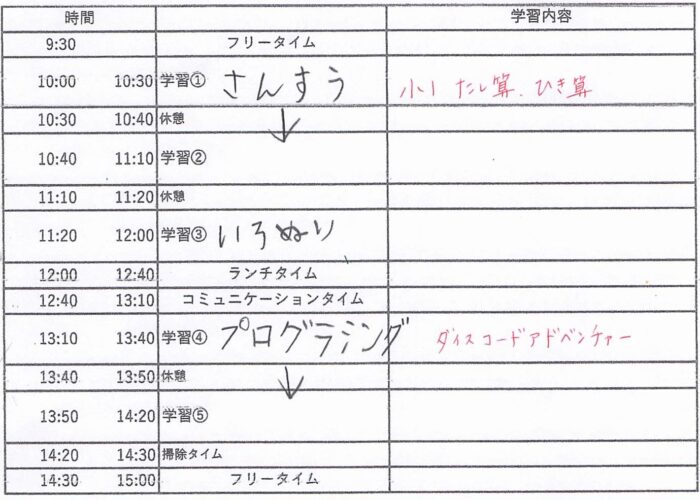 時間 学習内容
9:30 フリータイム
10:00 10:30 学習① さんすう 小1 たし算、ひき算
10:30 10:40 休憩 ↓
10:40 11:10 学習②
11:10 11:20 休憩
11:20 12:00 学習③ いろぬり
12:00 12:40 ランチタイム
12:40 13:10 コミュニケーションタイム
13:10 13:40 学習④ プログラミング ダイスコードアドベンチャー
13:40 13:50 休憩 ↓
13:50 14:20 学習⑤
14:20 14:30 掃除タイム
14:30 15:00 フリータイム